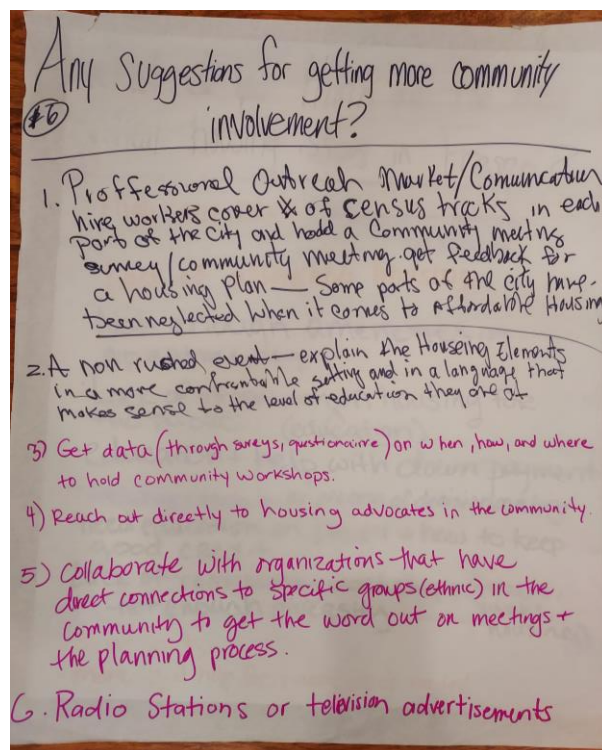 Any Suggestions for getting more community
#6 involvement?
1. Proffessional Outreah Market/Comuncation
hire workers cover of census tracks in each
part of the City and hodd a Community meeting
survey/community meeting. get feedback for
a housing plan — Some parts of the city have
been neglected When it comes to Affordable Housing
2. A non rushed event — explain the Houseing Elements
in a more comfrontable setting and in a language that
makes sense to the level of education they are at
3) Get data (through sureys, qustionairre) on when, how, and where
to hold community workshops.
4) Reach out directly to housing advocates in the community.
5) Collaborate with organizations that have
direct connections to specific groups (ethnic) in the
community to get the word out on meetings +
the planning process.
6. Radio Stations or television advertisements